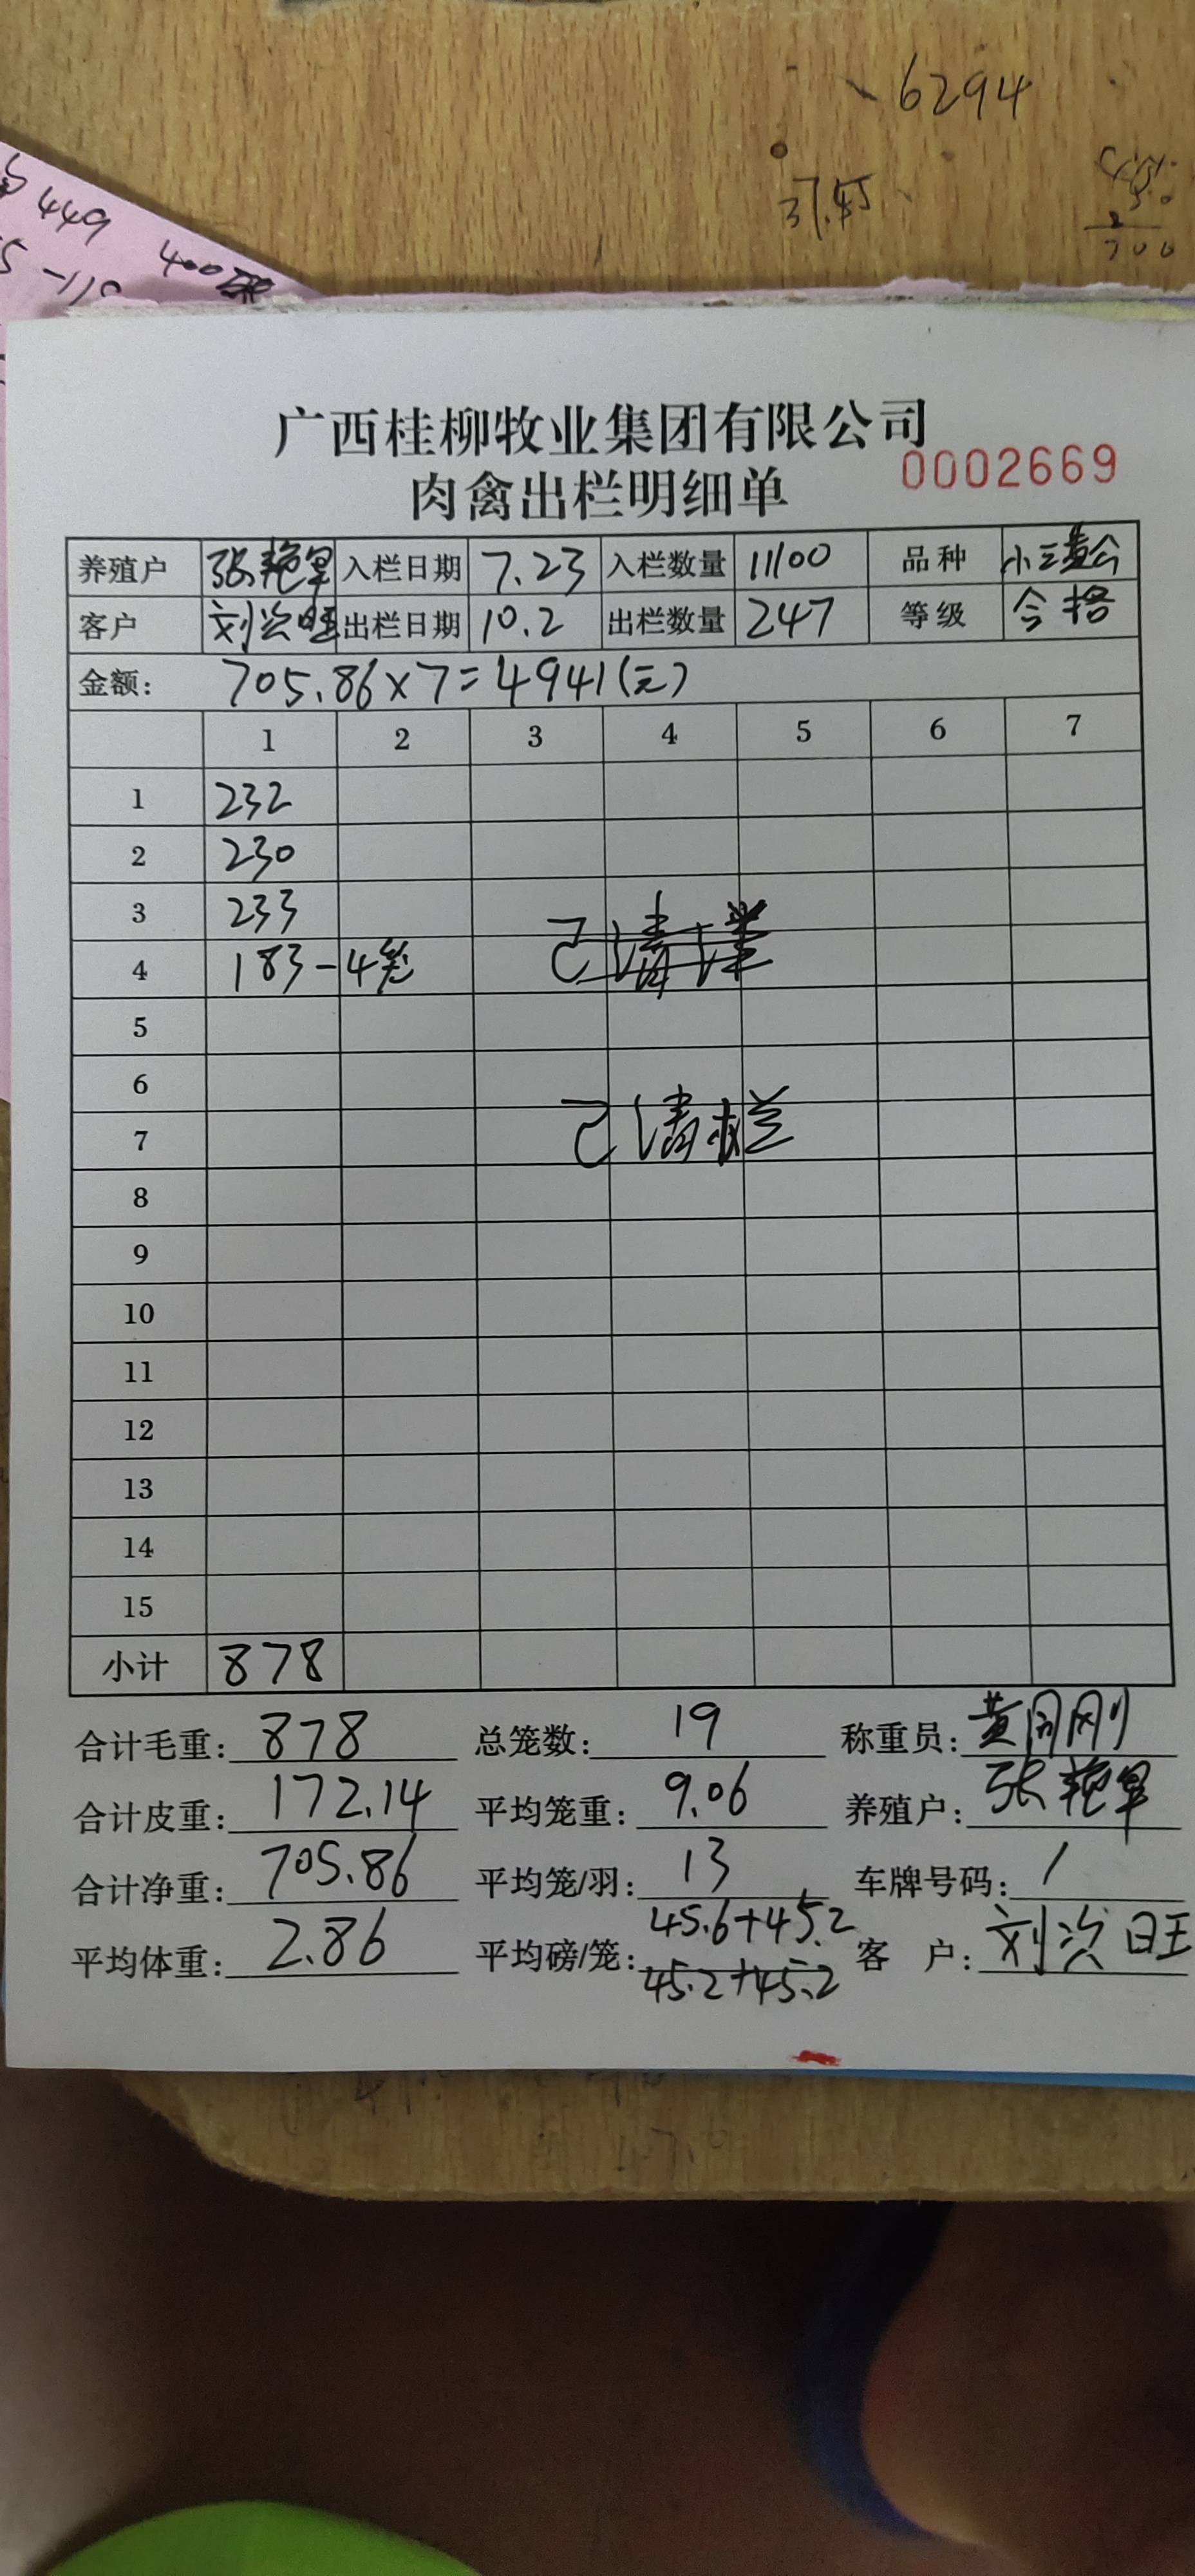 6294
37.45
449
-110 400
700
广西桂柳牧业集团有限公司
0002669
肉禽出栏明细单
养殖户 张艳早 入栏日期 7.23 入栏数量 11100 品种 小三黄公
客户 刘兴旺 出栏日期 10.2 出栏数量 247 等级 合格
金额: 705.86×7=4941(元)
1 2 3 4 5 6 7
1 232
2 230
3 233
4 183-4笼
5
6
7 已清栏
8
9
10
11
12
13
14
15
小计 878
合计毛重: 878 总笼数: 19 称重员: 黄同刚
合计皮重: 172.14 平均笼重: 9.06 养殖户: 张艳早
合计净重: 705.86 平均笼/羽: 13 车牌号码: /
45.6+45.2
平均体重: 2.86 平均磅/笼: 客 户: 刘兴旺
45.2+45.2